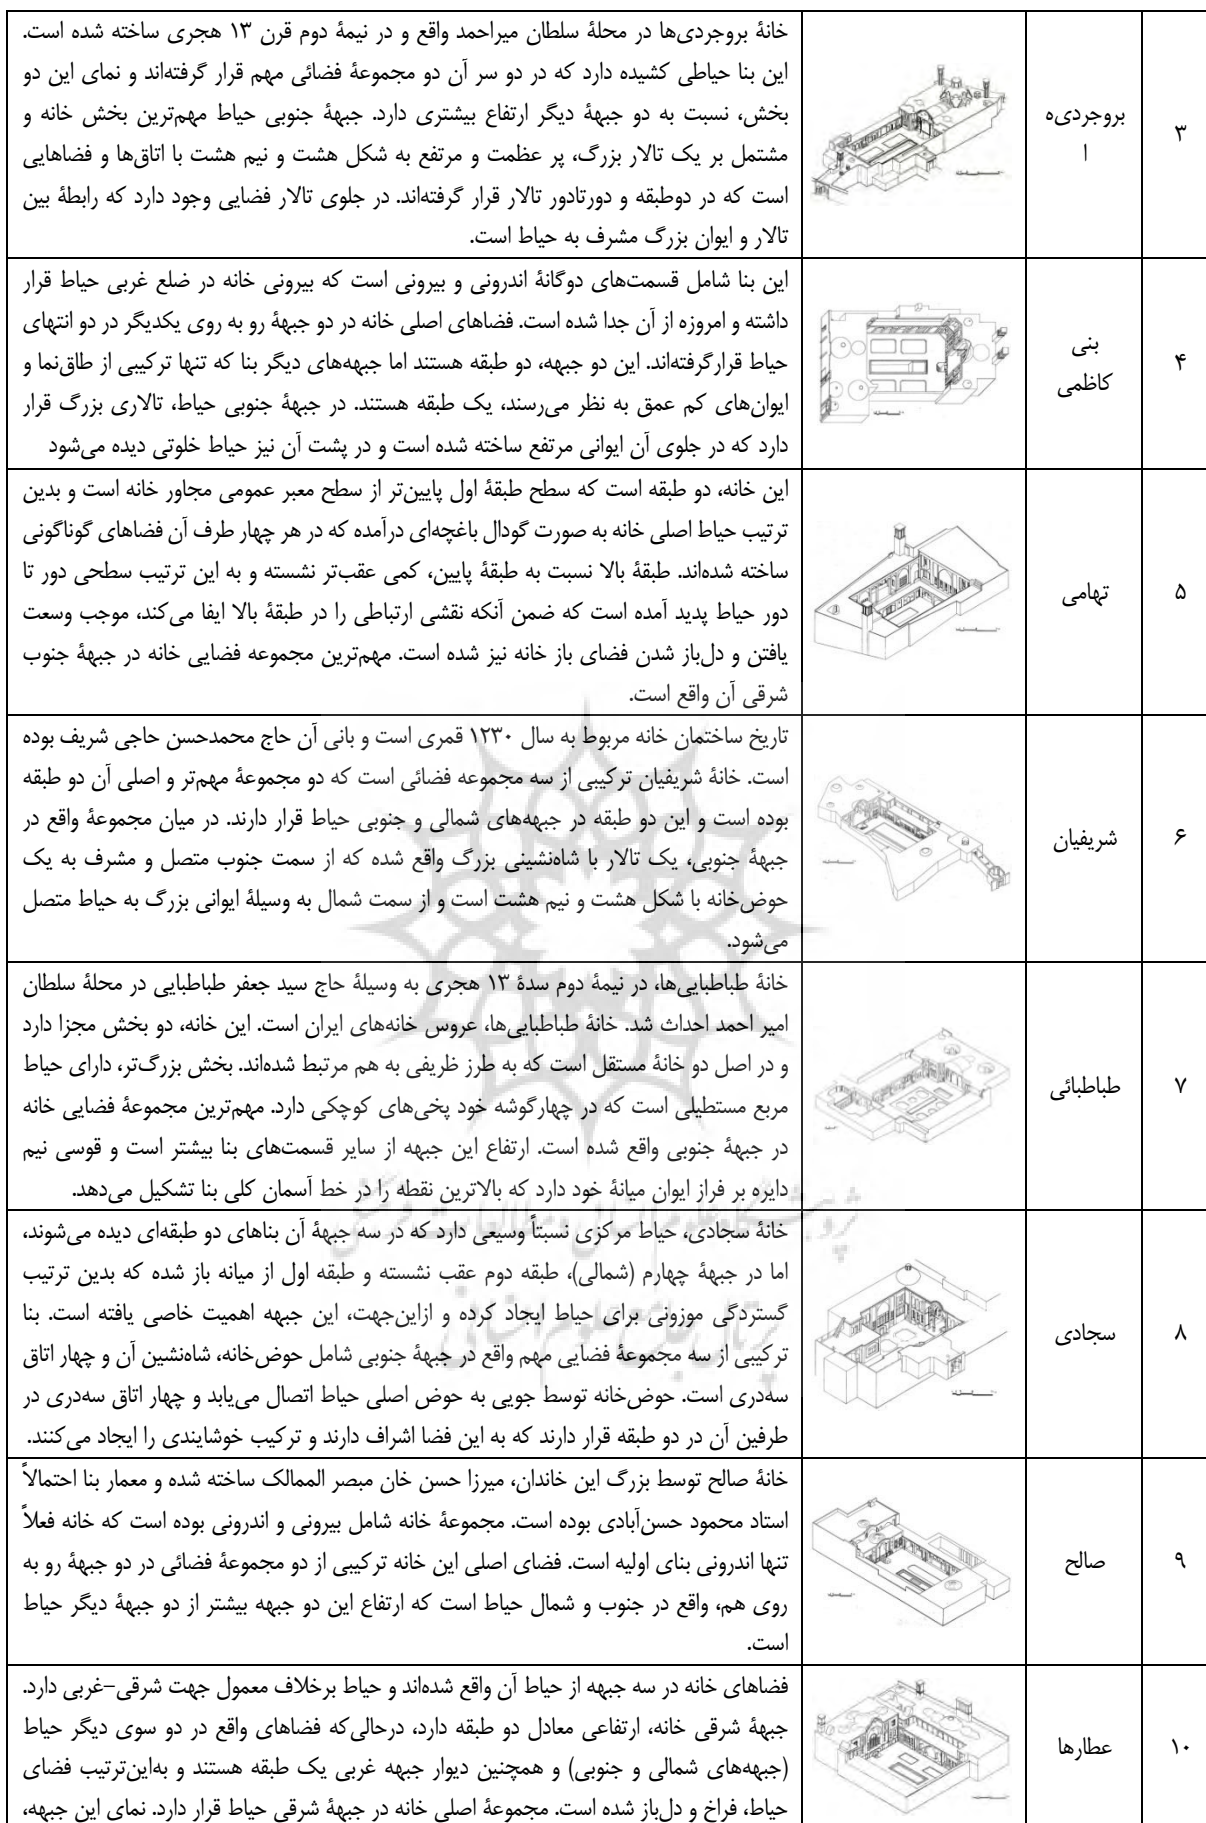 ۳
بروجردی‌ه
ا
خانهٔ بروجردی‌ها در محلهٔ سلطان میراحمد واقع و در نیمهٔ دوم قرن ۱۳ هجری ساخته شده است.
این بنا حیاطی کشیده دارد که در دو سر آن دو مجموعهٔ فضائی مهم قرار گرفته‌اند و نمای این دو
بخش، نسبت به دو جبههٔ دیگر ارتفاع بیشتری دارد. جبههٔ جنوبی حیاط مهم‌ترین بخش خانه و
مشتمل بر یک تالار بزرگ، پر عظمت و مرتفع به شکل هشت و نیم هشت با اتاق‌ها و فضاهایی
است که در دوطبقه و دورتادور تالار قرار گرفته‌اند. در جلوی تالار فضایی وجود دارد که رابطهٔ بین
تالار و ایوان بزرگ مشرف به حیاط است.
۴
بنی
کاظمی
این بنا شامل قسمت‌های دوگانهٔ اندرونی و بیرونی است که بیرونی خانه در ضلع غربی حیاط قرار
داشته و امروزه از آن جدا شده است. فضاهای اصلی خانه در دو جبههٔ رو به روی یکدیگر در دو انتهای
حیاط قرارگرفته‌اند. این دو جبهه، دو طبقه هستند اما جبهه‌های دیگر بنا که تنها ترکیبی از طاق‌نما و
ایوان‌های کم عمق به نظر می‌رسند، یک طبقه هستند. در جبههٔ جنوبی حیاط، تالاری بزرگ قرار
دارد که در جلوی آن ایوانی مرتفع ساخته شده است و در پشت آن نیز حیاط خلوتی دیده می‌شود
۵
تهامی
این خانه، دو طبقه است که سطح طبقهٔ اول پایین‌تر از سطح معبر عمومی مجاور خانه است و بدین
ترتیب حیاط اصلی خانه به صورت گودال باغچه‌ای درآمده که در هر چهار طرف آن فضاهای گوناگونی
ساخته شده‌اند. طبقهٔ بالا نسبت به طبقهٔ پایین، کمی عقب‌تر نشسته و به این ترتیب سطحی دور تا
دور حیاط پدید آمده است که ضمن آنکه نقشی ارتباطی را در طبقهٔ بالا ایفا می‌کند، موجب وسعت
یافتن و دل‌باز شدن فضای باز خانه نیز شده است. مهم‌ترین مجموعه فضایی خانه در جبههٔ جنوب
شرقی آن واقع است.
۶
شریفیان
تاریخ ساختمان خانه مربوط به سال ۱۲۳۰ قمری است و بانی آن حاج محمدحسن حاجی شریف بوده
است. خانهٔ شریفیان ترکیبی از سه مجموعه فضائی است که دو مجموعهٔ مهم‌تر و اصلی آن دو طبقه
بوده است و این دو طبقه در جبهه‌های شمالی و جنوبی حیاط قرار دارند. در میان مجموعهٔ واقع در
جبههٔ جنوبی، یک تالار با شاه‌نشینی بزرگ واقع شده که از سمت جنوب متصل و مشرف به یک
حوض‌خانه با شکل هشت و نیم هشت است و از سمت شمال به وسیلهٔ ایوانی بزرگ به حیاط متصل
می‌شود.
۷
طباطبائی
خانهٔ طباطبایی‌ها، در نیمهٔ دوم سدهٔ ۱۳ هجری به وسیلهٔ حاج سید جعفر طباطبایی در محلهٔ سلطان
امیر احمد احداث شد. خانهٔ طباطبایی‌ها، عروس خانه‌های ایران است. این خانه، دو بخش مجزا دارد
و در اصل دو خانهٔ مستقل است که به طرز ظریفی به هم مرتبط شده‌اند. بخش بزرگ‌تر، دارای حیاط
مربع مستطیلی است که در چهارگوشه خود پخی‌های کوچکی دارد. مهم‌ترین مجموعهٔ فضایی خانه
در جبههٔ جنوبی واقع شده است. ارتفاع این جبهه از سایر قسمت‌های بنا بیشتر است و قوسی نیم
دایره بر فراز ایوان میانهٔ خود دارد که بالاترین نقطه را در خط آسمان کلی بنا تشکیل می‌دهد.
۸
سجادی
خانهٔ سجادی، حیاط مرکزی نسبتاً وسیعی دارد که در سه جبههٔ آن بناهای دو طبقه‌ای دیده می‌شوند،
اما در جبههٔ چهارم (شمالی)، طبقه دوم عقب نشسته و طبقه اول از میانه باز شده که بدین ترتیب
گستردگی موزونی برای حیاط ایجاد کرده و ازاین‌جهت، این جبهه اهمیت خاصی یافته است. بنا
ترکیبی از سه مجموعهٔ فضایی مهم واقع در جبههٔ جنوبی شامل حوض‌خانه، شاه‌نشین آن و چهار اتاق
سه‌دری است. حوض‌خانه توسط جویی به حوض اصلی حیاط اتصال می‌یابد و چهار اتاق سه‌دری در
طرفین آن در دو طبقه قرار دارند که به این فضا اشراف دارند و ترکیب خوشایندی را ایجاد می‌کنند.
۹
صالح
خانهٔ صالح توسط بزرگ این خاندان، میرزا حسن خان مبصر الممالک ساخته شده و معمار بنا احتمالاً
استاد محمود حسن‌آبادی بوده است. مجموعهٔ خانه شامل بیرونی و اندرونی بوده است که خانه فعلاً
تنها اندرونی بنای اولیه است. فضای اصلی این خانه ترکیبی از دو مجموعهٔ فضائی در دو جبههٔ رو به
روی هم، واقع در جنوب و شمال حیاط است که ارتفاع این دو جبهه بیشتر از دو جبههٔ دیگر حیاط
است.
۱۰
عطارها
فضاهای خانه در سه جبهه از حیاط آن واقع شده‌اند و حیاط برخلاف معمول جهت شرقی-غربی دارد.
جبههٔ شرقی خانه، ارتفاعی معادل دو طبقه دارد، درحالی‌که فضاهای واقع در دو سوی دیگر حیاط
(جبهه‌های شمالی و جنوبی) و همچنین دیوار جبهه غربی یک طبقه هستند و به‌این‌ترتیب فضای
حیاط، فراخ و دل‌باز شده است. مجموعهٔ اصلی خانه در جبههٔ شرقی حیاط قرار دارد. نمای این جبهه،
پژوهشگاه علوم انسانی و مطالعات فرهنگی
پرتال جامع علوم انسانی